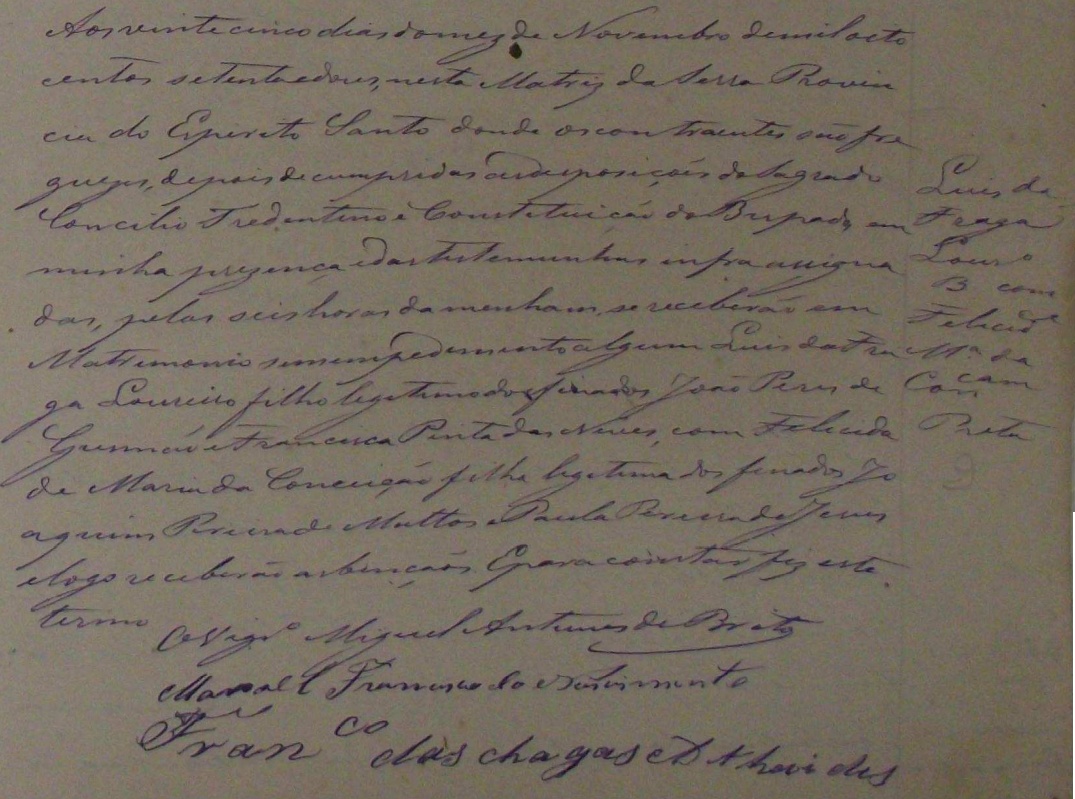 Aos vinte cinco dias do mez de Novembro de mil oito
centos setenta e dous, nesta Matriz da Serra Provin
cia do Espirito Santo donde os contraentes são fre
guezes, depois de cumpridas as desposições do Sagrado
Concilio Tredentino e Constituição do Bispado, em
minha prezença e das testemunhas infra assigna
das, pelas seis horas da menham, se receberão em
Matrimonio sem empedimento algum Luis da Fra
ga Loureiro filho legitimo dos finados João Peres de
Gusmão e Francisca Pinta das Neves, com Felicida
de Maria da Conceição filha legitima dos finados Jo
aquim Pereira de Mattos e Paula Pereira de Jesus
e logo receberão as bençãos E para constar fiz este
termo
O Vigr.o Miguel Antunes de Brito
Manoel Francisco do Nascimento
Fran co das chagas
Luis da
Fraga
Lour.o
B com
Felicid.e
M.a da
Con cam
Preta
9